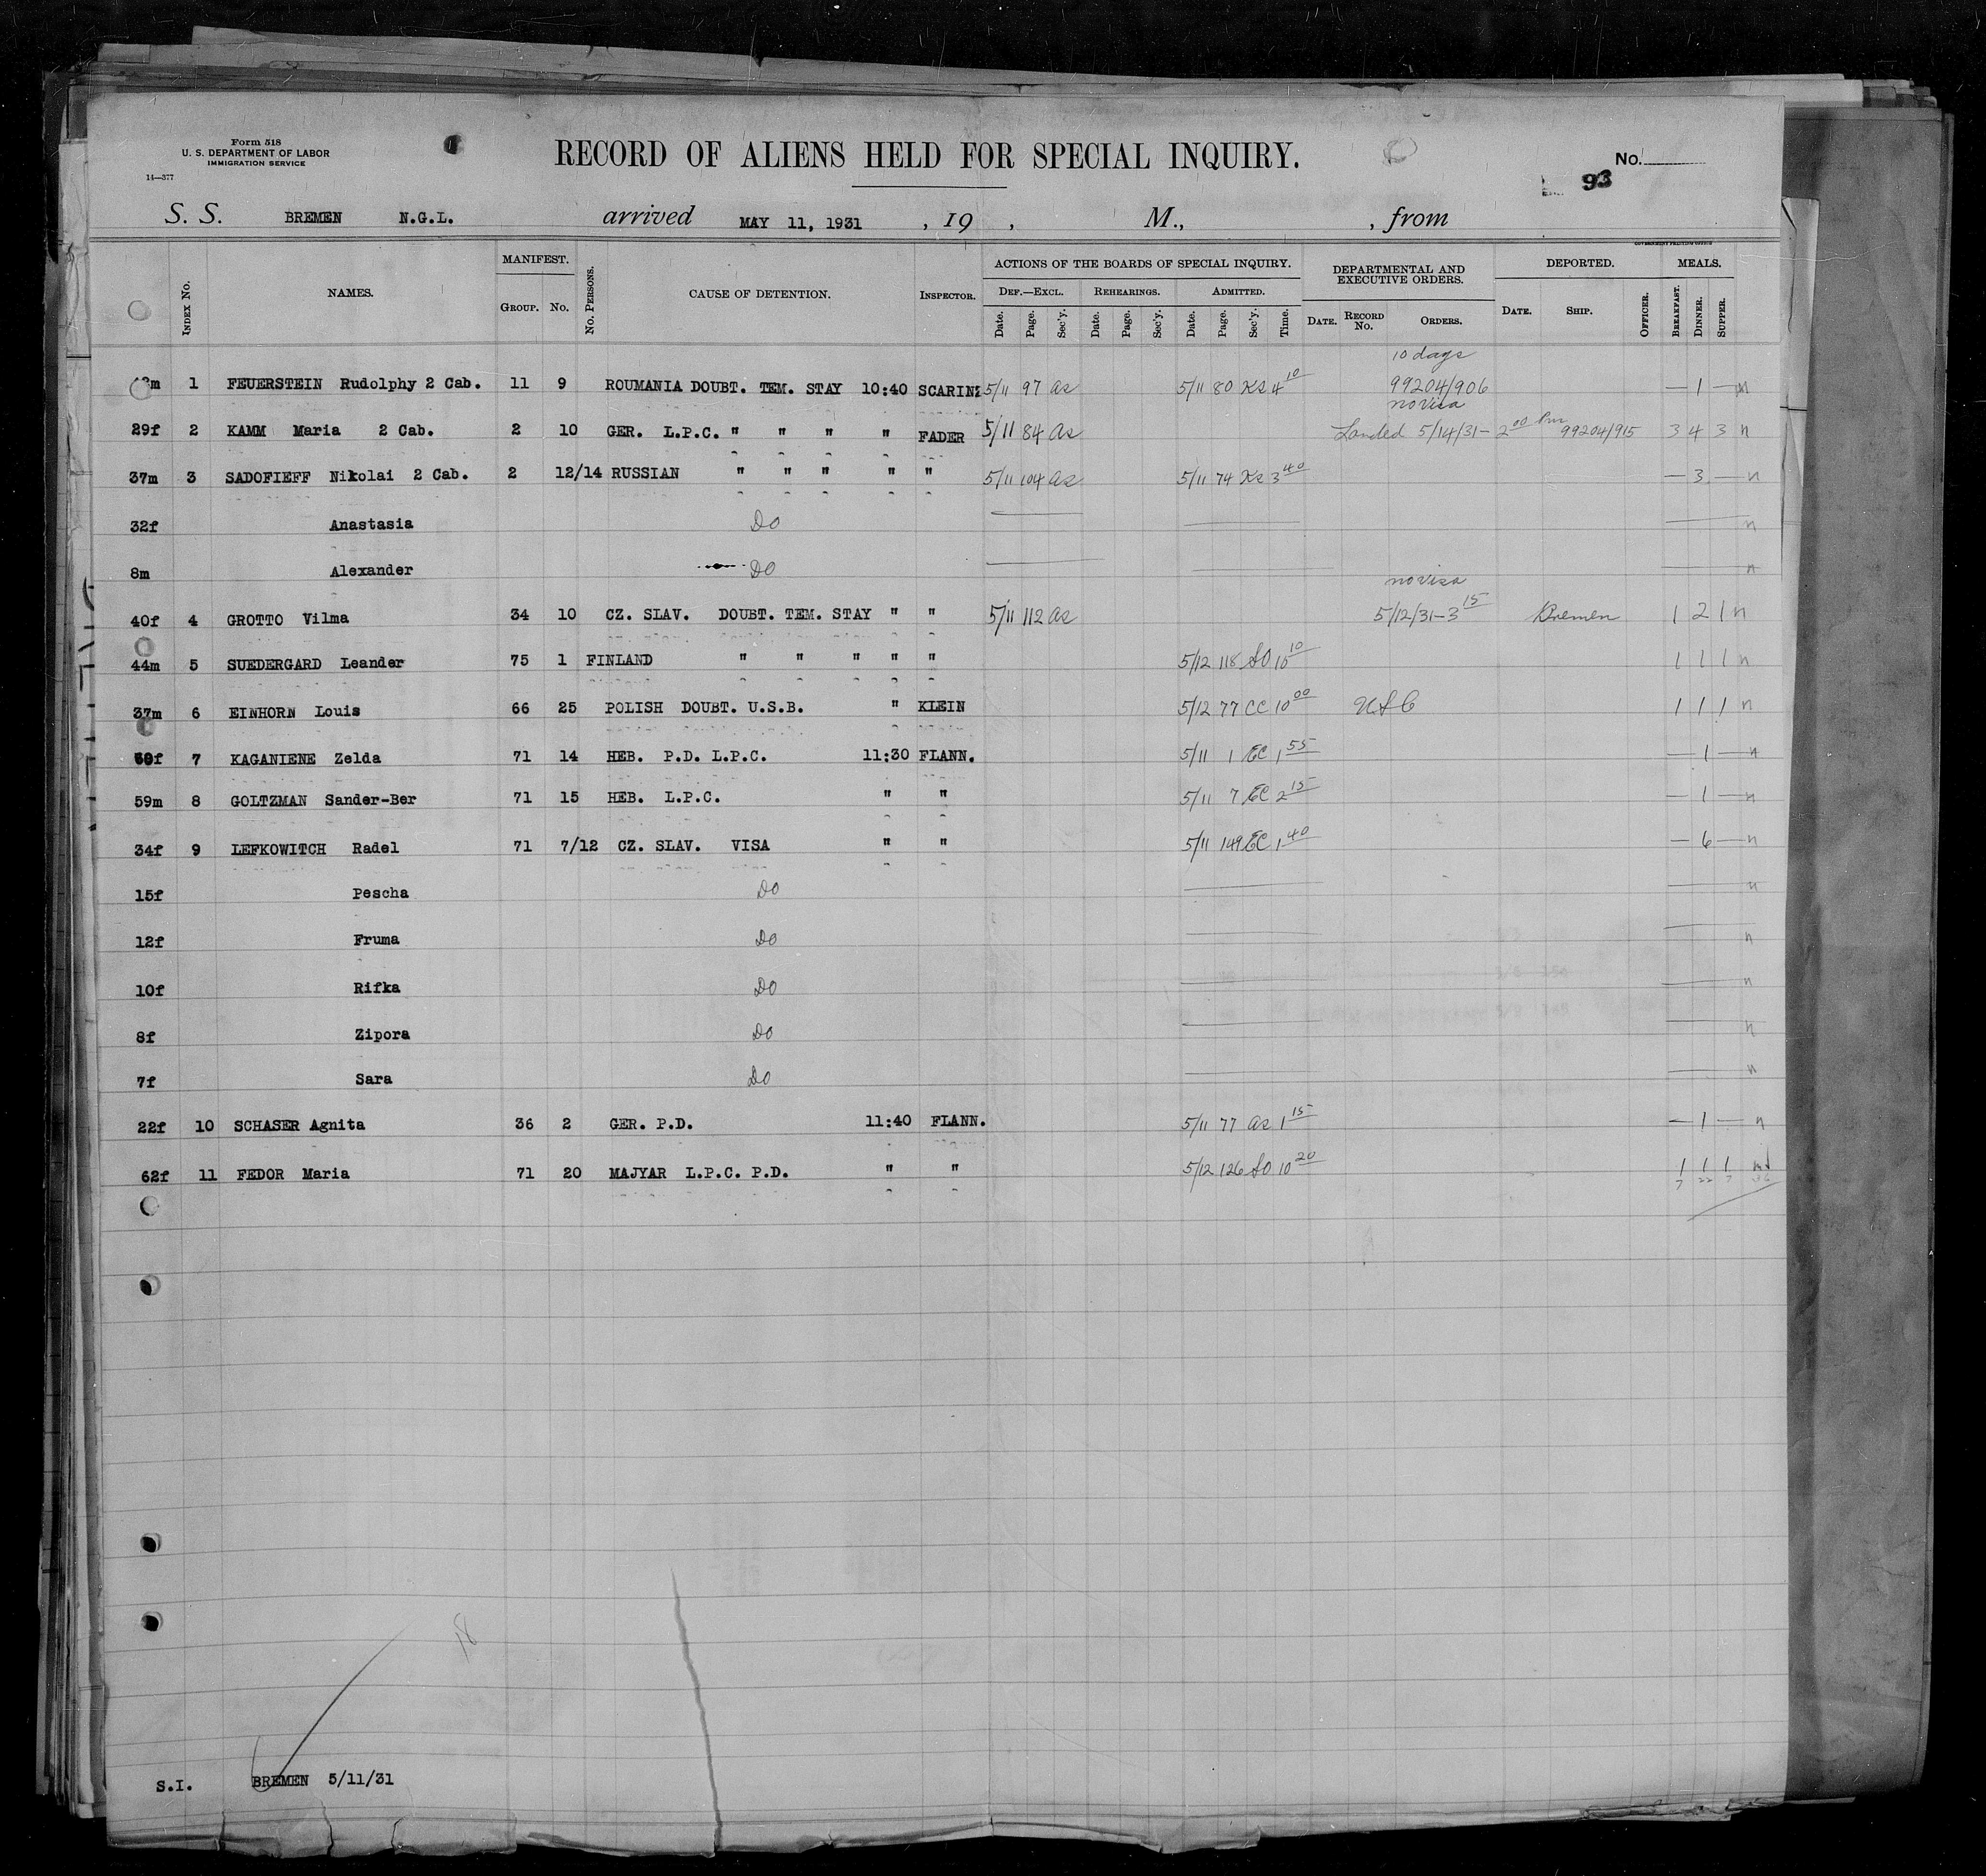 Form 518
U. S. DEPARTMENT OF LABOR
IMMIGRATION SERVICE
14—377
RECORD OF ALIENS HELD FOR SPECIAL INQUIRY.
No.
93
S. S. BREMEN N.G.L. arrived MAY 11, 1931 , 19 , M., , from
GOVERNMENT PRINTING OFFICE
INDEX No. NAMES. MANIFEST. GROUP. No. No. PERSONS. CAUSE OF DETENTION. INSPECTOR. ACTIONS OF THE BOARDS OF SPECIAL INQUIRY. DEF.—EXCL. Date. Page. Sec'y. REHEARINGS. Date. Page. Sec'y. ADMITTED. Date. Page. Sec'y. Time. DEPARTMENTAL AND EXECUTIVE ORDERS. DATE. RECORD No. ORDERS. DEPORTED. DATE. SHIP. OFFICER. MEALS. BREAKFAST. DINNER. SUPPER.
10 days
m 1 FEUERSTEIN Rudolphy 2 Cab. 11 9 ROUMANIA DOUBT. TEM. STAY 10:40 SCARINZ 5/11 97 as 5/11 80 Ks 4 10 99204/906 — 1 — n
no visa
29f 2 KAMM Maria 2 Cab. 2 10 GER. L.P.C. " " " " FADER 5/11 84 as Landed 5/14/31 - 2 00 Pm 99204/915 3 4 3 n
37m 3 SADOFIEFF Nikolai 2 Cab. 2 12/14 RUSSIAN " " " " " 5/11 104 as 5/11 74 Ks 3 40 — 3 — n
32f Anastasia Do n
8m Alexander Do n
no visa
40f 4 GROTTO Vilma 34 10 CZ. SLAV. DOUBT. TEM. STAY " " 5/11 112 as 5/12/31-3 15 Bremen 1 2 1 n
44m 5 SUEDERGARD Leander 75 1 FINLAND " " " " " 5/12 118 SO 10 10 1 1 1 n
37m 6 EINHORN Louis 66 25 POLISH DOUBT. U.S.B. " KLEIN 5/12 77 CC 10 00 USC 1 1 1 n
f 7 KAGANIENE Zelda 71 14 HEB. P.D. L.P.C. 11:30 FLANN. 5/11 1 EC 1 55 — 1 — n
59m 8 GOLTZMAN Sander-Ber 71 15 HEB. L.P.C. " " 5/11 7 EC 2 15 — 1 — n
34f 9 LEFKOWITCH Radel 71 7/12 CZ. SLAV. VISA " " 5/11 149 EC 1 40 — 6 — n
15f Pescha Do n
12f Fruma Do n
10f Rifka Do n
8f Zipora Do n
7f Sara Do n
22f 10 SCHASER Agnita 36 2 GER. P.D. 11:40 FLANN. 5/11 77 as 1 15 — 1 — n
62f 11 FEDOR Maria 71 20 MAJYAR L.P.C. P.D. " " 5/12 126 SO 10 20 1 1 1
7 22 7 36
S.I. BREMEN 5/11/31